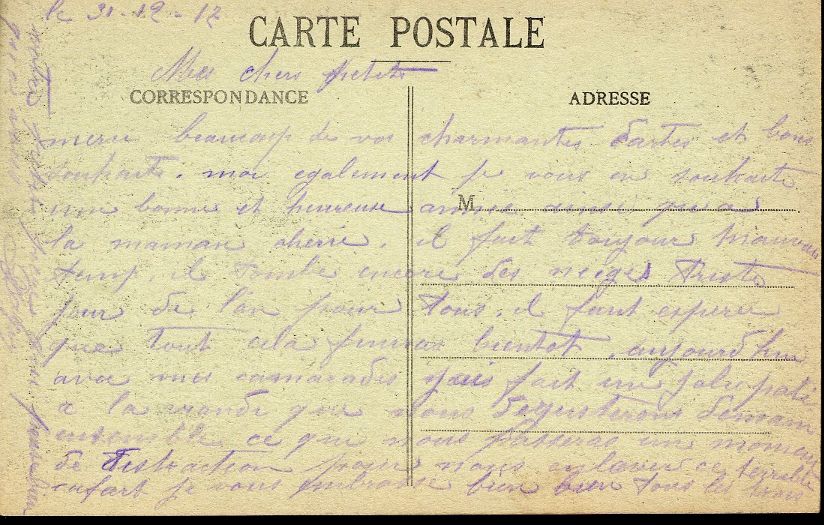 le 31-12-17
CARTE POSTALE
Mes chers petits
CORRESPONDANCE
ADRESSE
merci beaucoup de vos charmantes cartes et bons
souhaits. moi egalement je vous en souhaite
une bonne et heureuse annee ainsi qu'a
M
la maman cherie. il fait toujour mauvais
temp, il tombe encore des neiges triste
jour de l'an pour tous. il faut esperer
que tout cela finira bientot. aujourd'hui
avec mes camarades j'ais fait un jolie paté
a la viande que nous degusterons demain
ensemble ce que nous passeras un moment
de distraction pour nous enlever ce terrible
cafart je vous embrasse bien bien tous les trois
votre